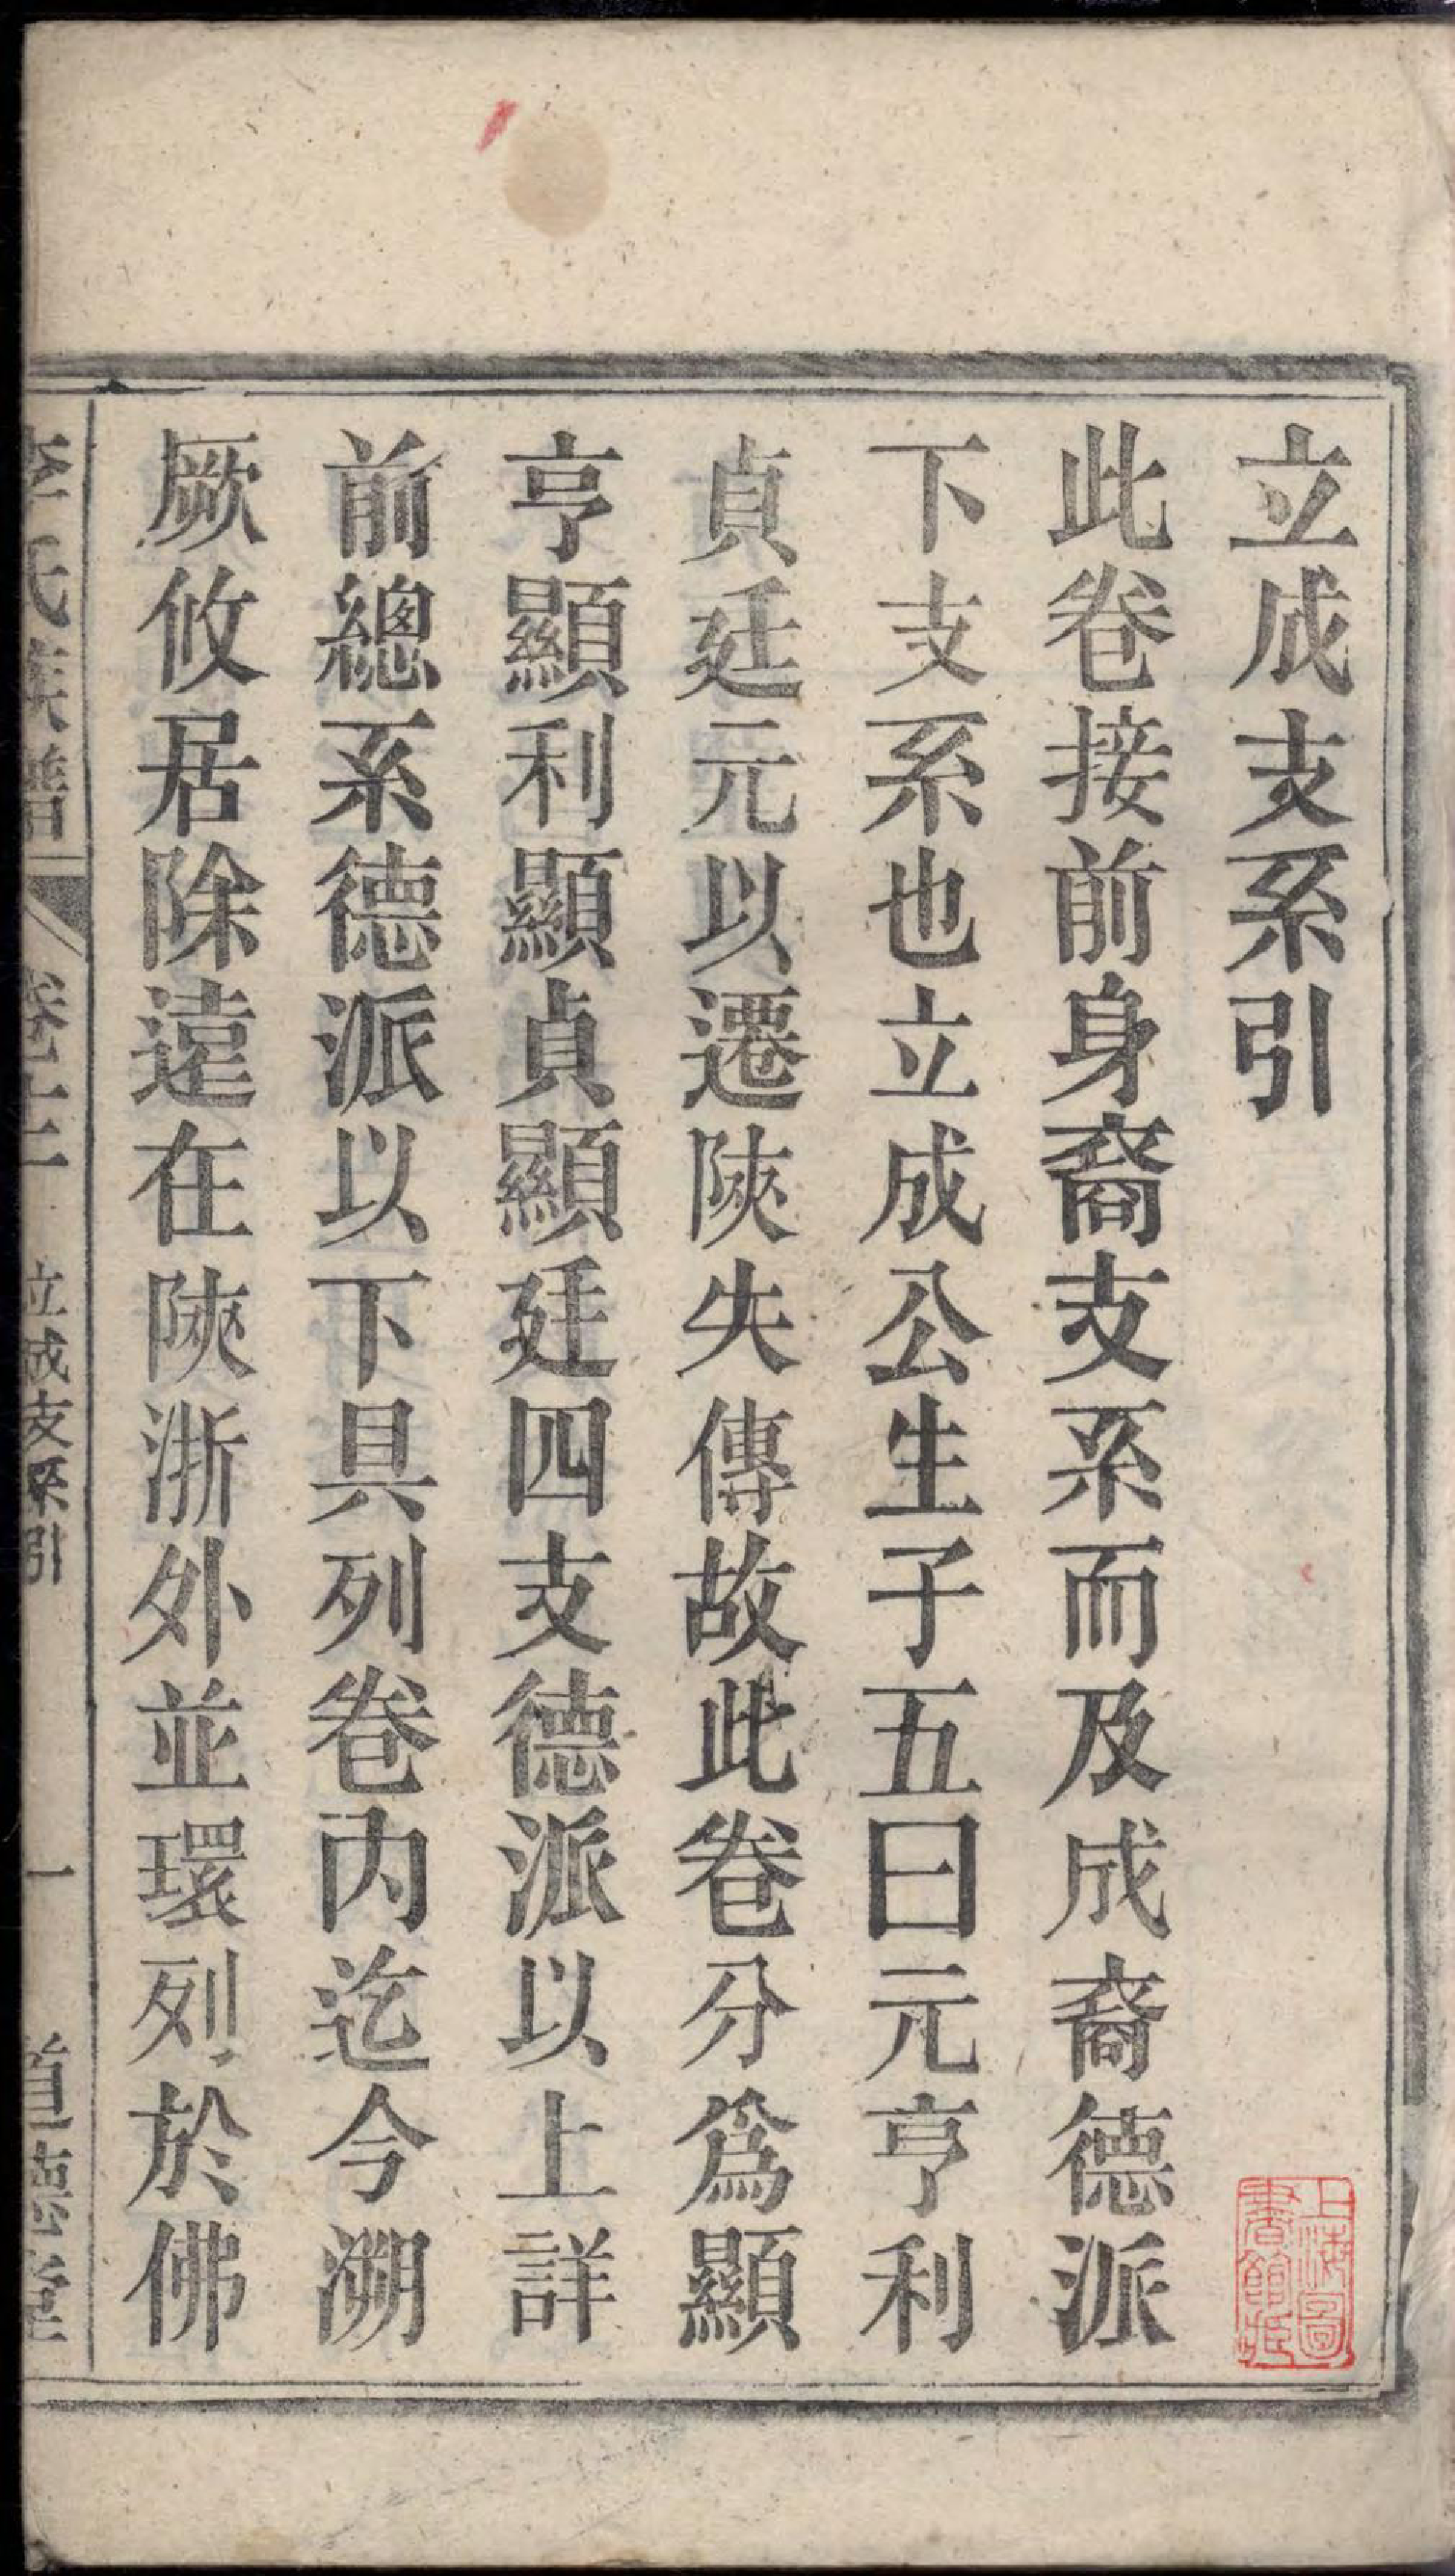 立成支系引
此卷接前身裔支系而及成裔德派
下支系也立成公生子五曰元亨利
貞廷元以遷陝失傳故此卷分爲顯
亨顯利顯貞顯廷四支德派以上詳
前總系德派以下具列卷内迄今溯
厥攸居除遠在陝浙外並環列於佛
李氏族譜
立成支系引
一
道德堂
上海圖書館藏